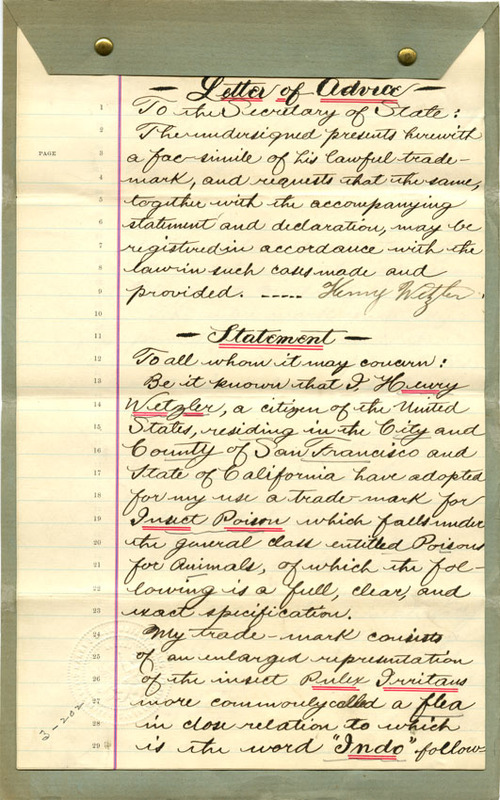 — Letter of Advice —
1 To the Secretary of State:
2 The undersigned presents herewith
PAGE 3 a fac-simile of his lawful trade-
4 mark, and requests that the same,
5 together with the accompanying
6 statement and declaration, may be
7 registered in accordance with the
8 law in such cases made and
9 provided. ----- Henry Wetzler
10
11 — Statement —
12 To all whom it may concern:
13 Be it known that I, Henry
14 Wetzler, a citizen of the United
15 States, residing in the City and
16 County of San Francisco and
17 State of California have adopted
18 for my use a trade-mark for
19 Insect Poison which falls under
20 the general class entitled Poisons
21 for Animals, of which the fol-
22 lowing is a full, clear, and
23 exact specification.
24 My trade-mark consists
25 of an enlarged representation
26 of the insect Pulex Irritans
27 more commonly called a flea
28 in close relation to which
29 is the word "Indo" follow-
3-202